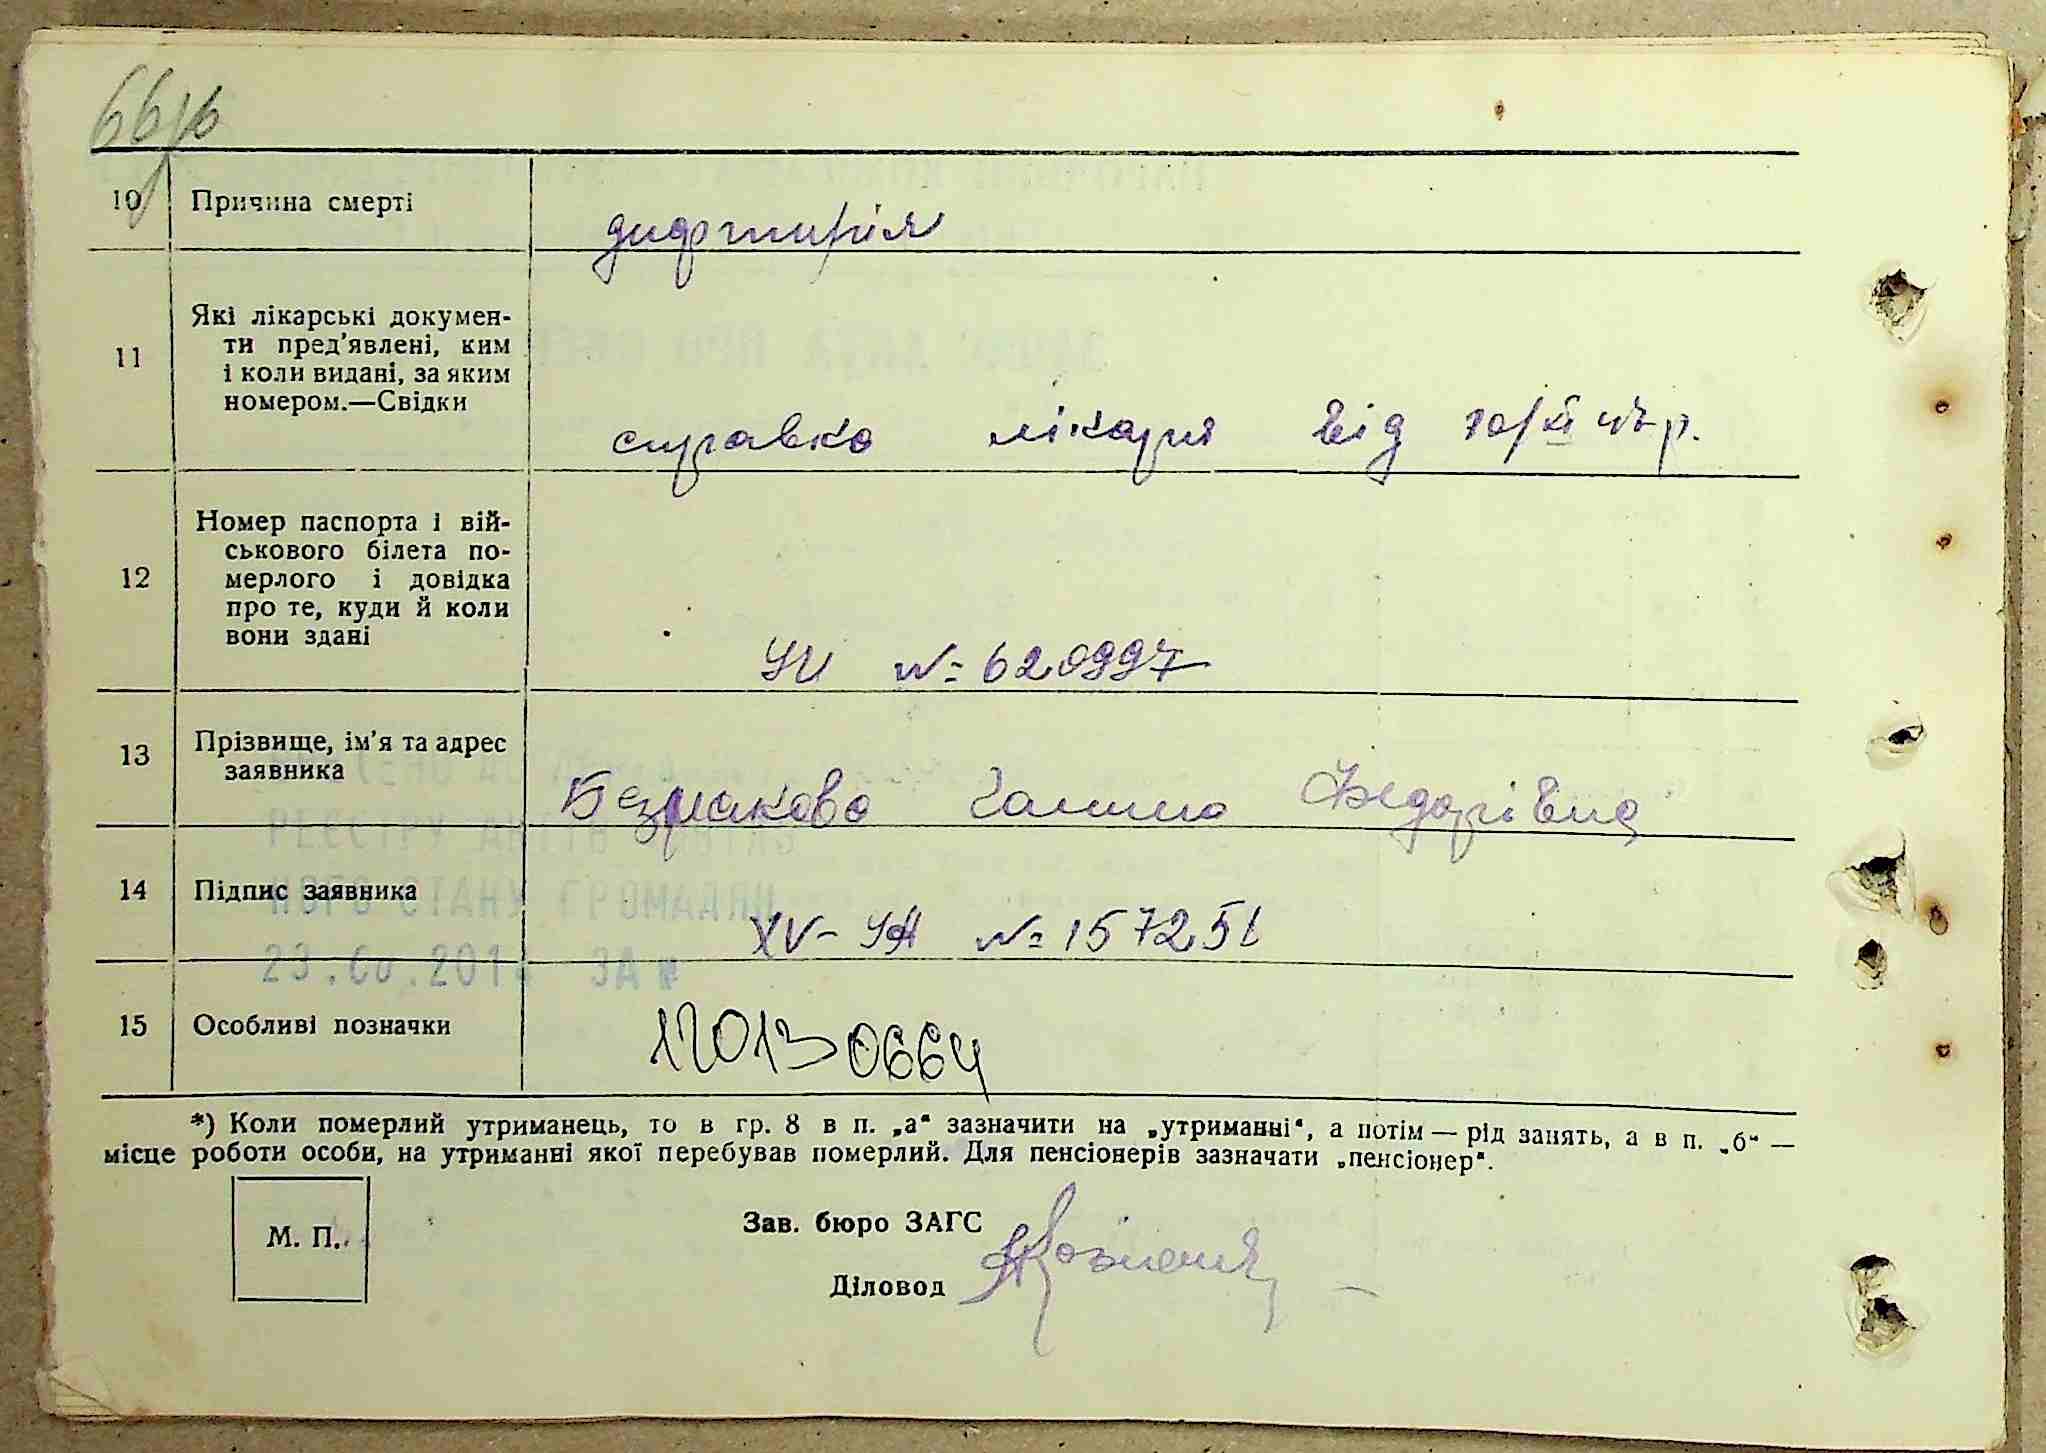 10 Причина смерті
дифтирія
11 Які лікарські докумен-
ти пред'явлені, ким
і коли видані, за яким
номером.—Свідки
справка лікаря від 10/XI
12 Номер паспорта і вій-
ськового білета по-
мерлого і довідка
про те, куди й коли
вони здані
УИ № 620997
13 Прізвище, ім'я та адрес
заявника
Безмакова Галина Федорівна
14 Підпис заявника
XV-УА № 157251
РЕЄСТРУ АКТІВ
НОГО СТАНУ ГРОМАДЯН
15 Особливі позначки
120130664
*) Коли померлий утриманець, то в гр. 8 в п. „а“ зазначити на „утриманні“, а потім — рід занять, а в п. „б“ —
місце роботи особи, на утриманні якої перебував померлий. Для пенсіонерів зазначати „пенсіонер“.
М. П.
Зав. бюро ЗАГС
Діловод